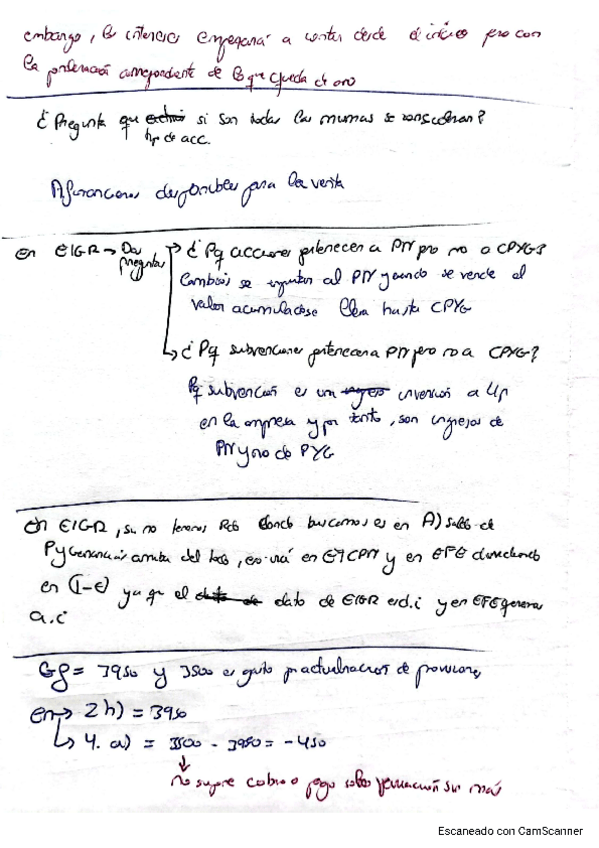 embargo, los intereses empezarán a contar desde el inicio pero con
la ponderación correspondiente de lo que queda de año
¿Pregunta que si son todas las mismas se consideran?
tip de acc.
A financieros disponibles para la venta
en EIGR → Dos preguntas → ¿Pq acciones pertenecen a PN pero no a CPYG?
Cambios se imputan al PN y cuando se vende el
valor acumulado se lleva hasta CPYG
↳ ¿Pq subvenciones pertenecen a PN pero no a CPYG?
Pq subvención es una inversión a l/p
en la empresa y por tanto, son ingresos de
PN y no de PYG
en EIGR, si no tenemos Rdo donde buscamos es en A) saldo de
PyGanancias arriba del todo, eso irá en ETCPN y en EFE
en (1-t) ya que el dato de EIGR es d.i y en EFE
a.i
Gg = 3950 y 3500 es gasto por actualización de provisiones
en → 2 h) = 3950
↳ 4. a) = 3500 - 3950 = -450
↓
no supone cobro o pago
Escaneado con CamScanner